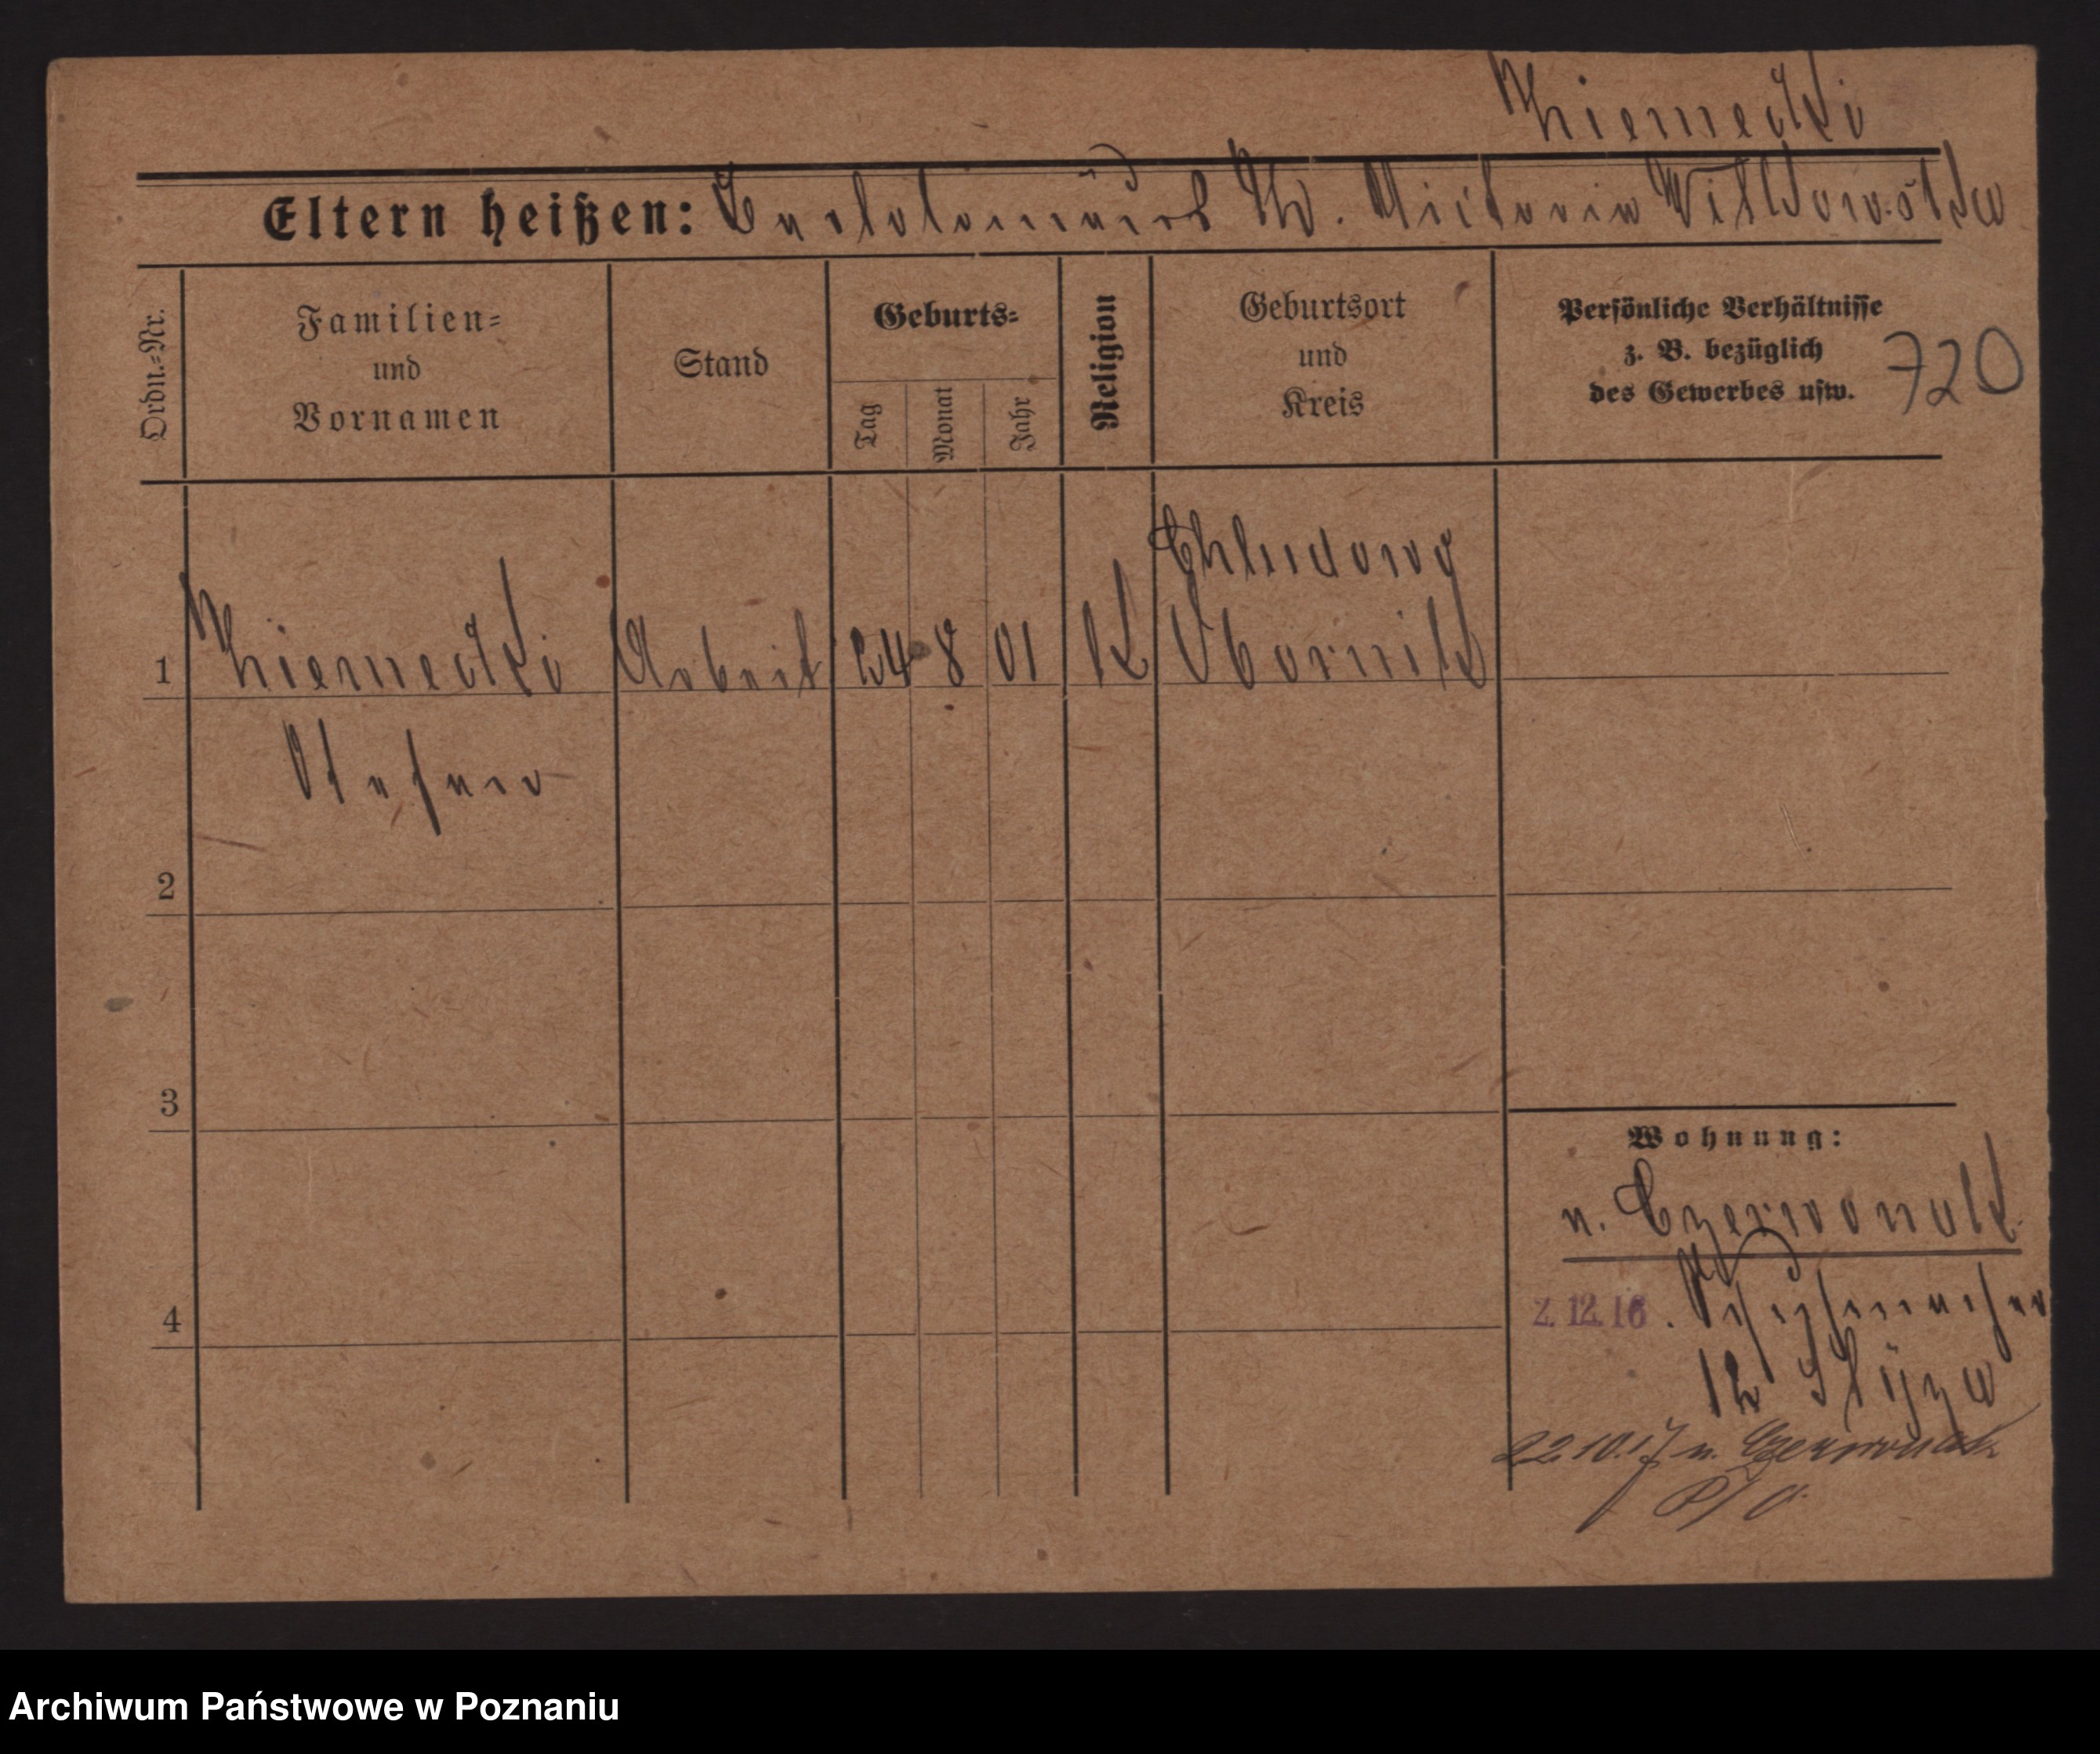 Niemecki
Eltern heißen: Bartolomäus Th. Victoria Witkowska
Ordn.-Nr.
Familien-
und
Vornamen
Stand
Geburts-
Tag
Monat
Jahr
Religion
Geburtsort
und
Kreis
Persönliche Verhältnisse
z. B. bezüglich
des Gewerbes usw.
720
Chludowo
1 Niemecki Arbeit 24 8 01 K Obornik
2
3
4
Wohnung:
n. Czerwonak
2.12.16. Schuhmacher
12
22.10.17 n. Czerwonak
Archiwum Państwowe w Poznaniu